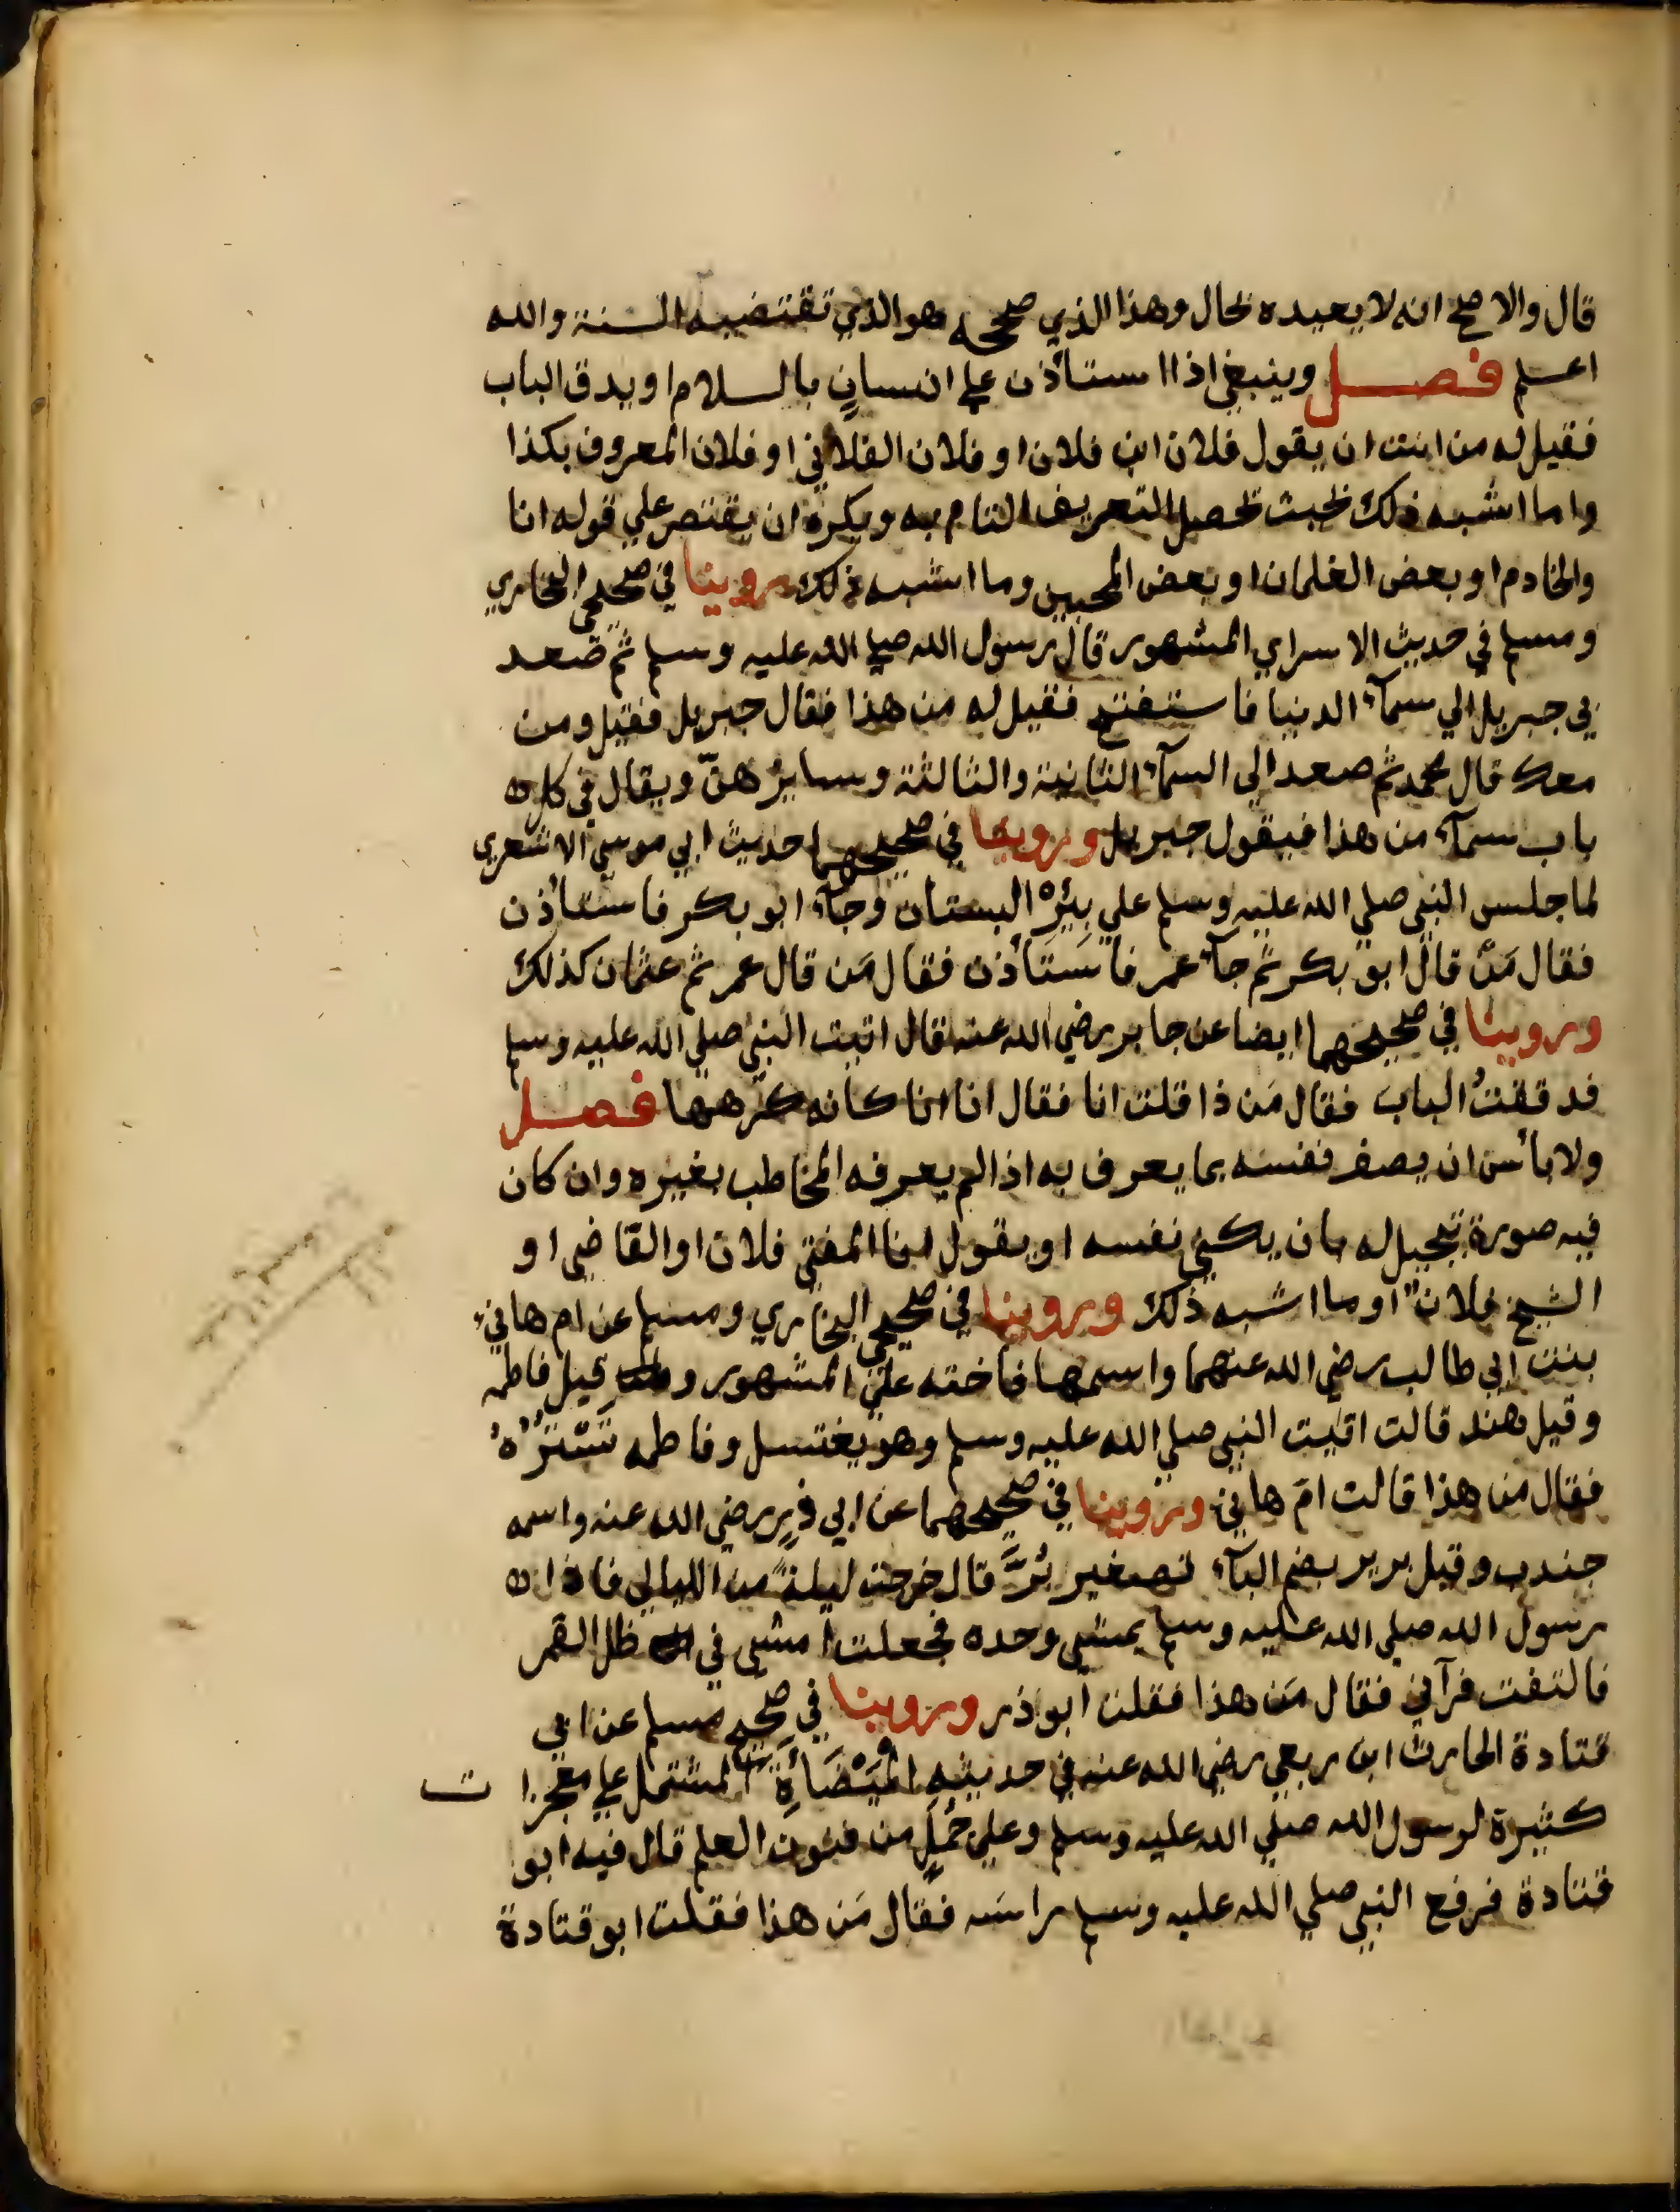 قال والاصح انه لا يعيده بحال وهذا الذي صححه هو الذي تقتضيه السنة والله
اعلم فصل وينبغي اذا استأذن علي انسانٍ بالسلام او يدق الباب
فقيل له من انت ان يقول فلان ابن فلان او فلان الفلاني او فلان المعروف بكذا
واما اشبه ذلك بحيث تحصل التعريف التام به ويكره ان يقتصر علي قوله انا
والخادم او بعض الغلمان او بعض المحبين وما اشبه ذلك روينا في صحيحي البخاري
ومسلم في حديث الاسراي المشهور قال رسول الله صلي الله عليه وسلم ثم صعد
بي جبريل الي سمآء الدنيا فاستفتح فقيل له من هذا فقال جبريل فقيل ومن
معك قال محمد ثم صعد الي السمآء الثانية والثالثة وسايرهنّ ويقال في كل
باب سمآء من هذا فيقول جبريل وروينا في صحيحهما حديث ابي موسي الاشعري
لما جلس النبي صلي الله عليه وسلم علي بئره البستان وجآء ابو بكر فاستأذن
فقال مَن قال ابو بكر ثم جآء عمر فاستَأذن فقال مَن قال عمر ثم عثمان كذلك
وروينا في صحيحهما ايضا عن جابر رضي الله عنه قال اتيت النبي صلي الله عليه وسلم
فدققتُ الباب فقال مَن ذا قلت انا فقال انا انا كانه كرهها فصل
ولا بأس ان يصف نفسه بما يعرف به اذا لم يعرفه المخاطب بغيره وان كان
فيه صورة تبجيل له بان يكني نفسه او يقول انا المفتي فلان او القاضي او
الشيخ فلانٌ او ما اشبه ذلك وروينا في صحيحي البخاري ومسلم عن ام هانيء
بنت ابي طالب رضي الله عنهما واسمها فاخته علي المشهور و قيل فاطمه
وقيل هند قالت اتيت النبي صلي الله عليه وسلم وهو يغتسل وفاطمه تَسْترُهُ
فقال من هذا قالت امّ هاني وروينا في صحيحهما عن ابي ذرٍ رضي الله عنه واسمه
جندب وقيل برير بضم البآء تصغير بُرَّ قال خرجت ليلةً من الليالي فاذا
رسول الله صلي الله عليه وسلم يمشي وحده فجعلت امشي في ظل القمر
فالتفت فرآني فقال مَن هذا فقلت ابو ذر وروينا في صحيح مسلم عن ابي
قتادة الحارث ابن ربعي رضي الله عنه في حديثه المِيْضَأةِ المشتمل علي معجزات
كثيرة لرسول الله صلي الله عليه وسلم وعلي جُملٍ من فنون العلم قال فيه ابو
قتادة فرفع النبي صلي الله عليه وسلم راسَه فقال مَن هذا فقلت ابو قتادة